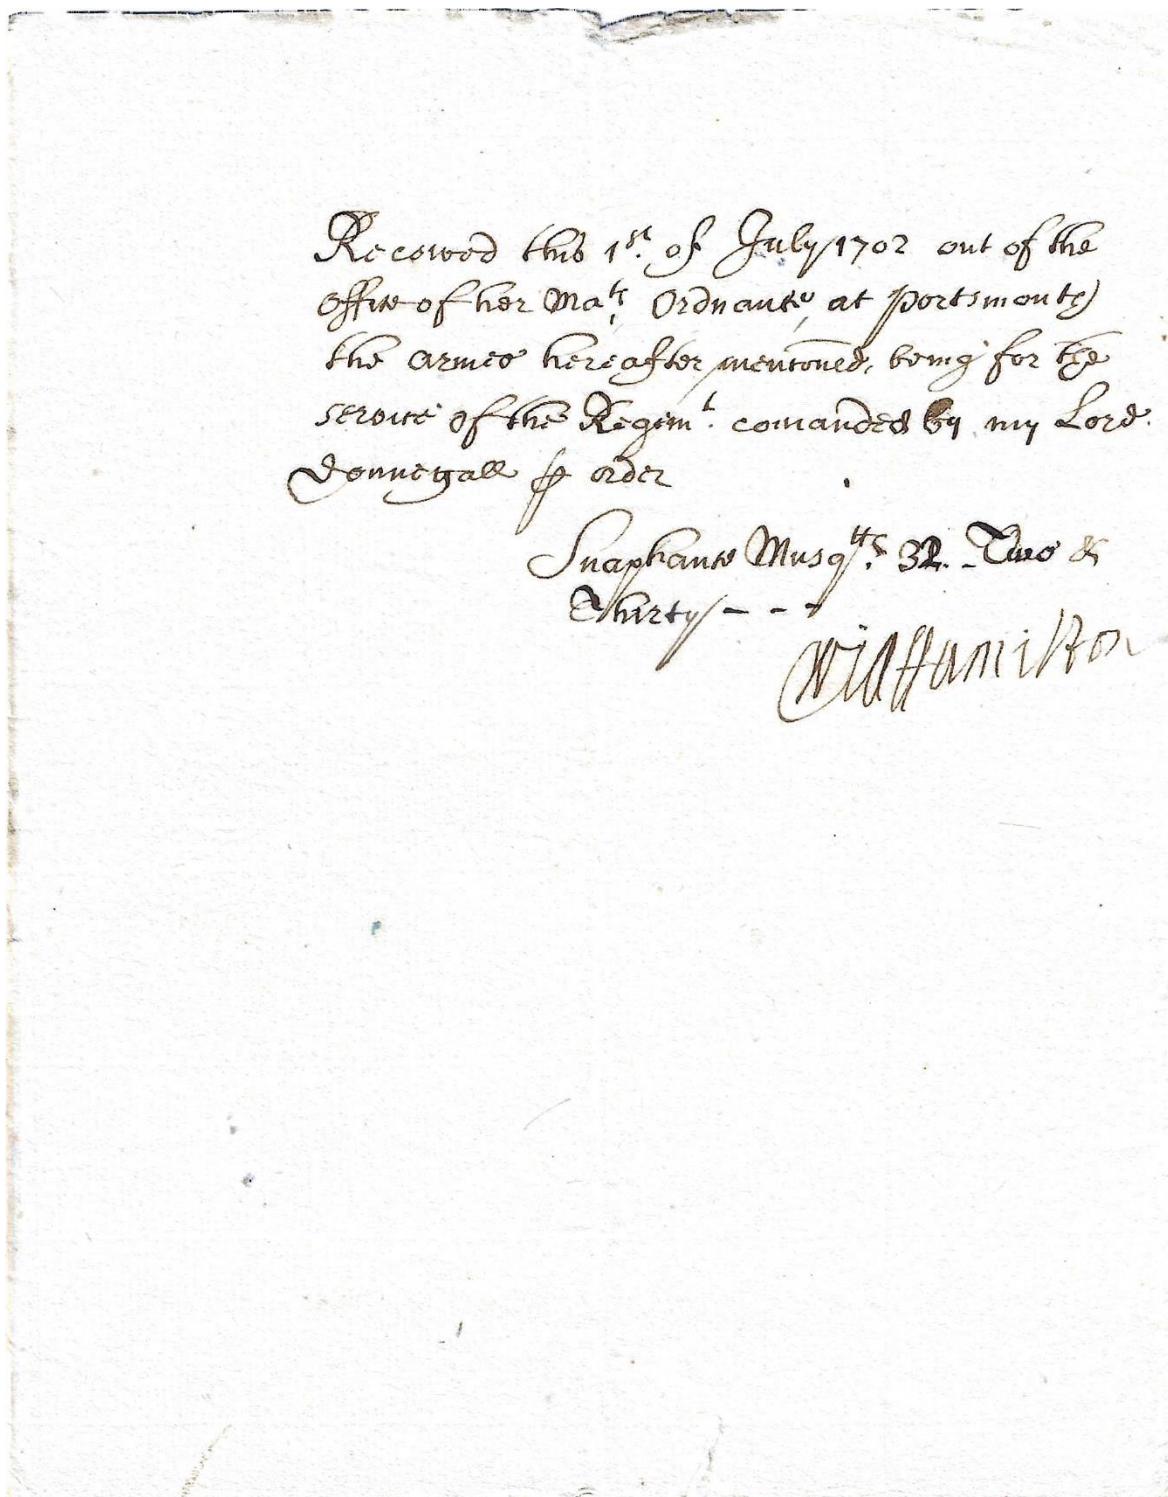 Receiued this 1st. of July 1702 out of the
Office of her Mats. Ordnance, at Portsmouth
the Armes hereafter mentoned, being for the
service of the Regimt. comanded by my Lord
Donnegall p order
Snaphance Musqtts. 32. Two &
Thirty - - -
Will Hamilton